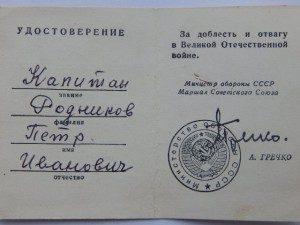 УДОСТОВЕРЕНИЕ
Капитан
звание
Родников
фамилия
Петр
имя
Иванович
отчество
За доблесть и отвагу
в Великой Отечественной
войне.
Министр обороны СССР
Маршал Советского Союза
А. ГРЕЧКО
Министерство СССР